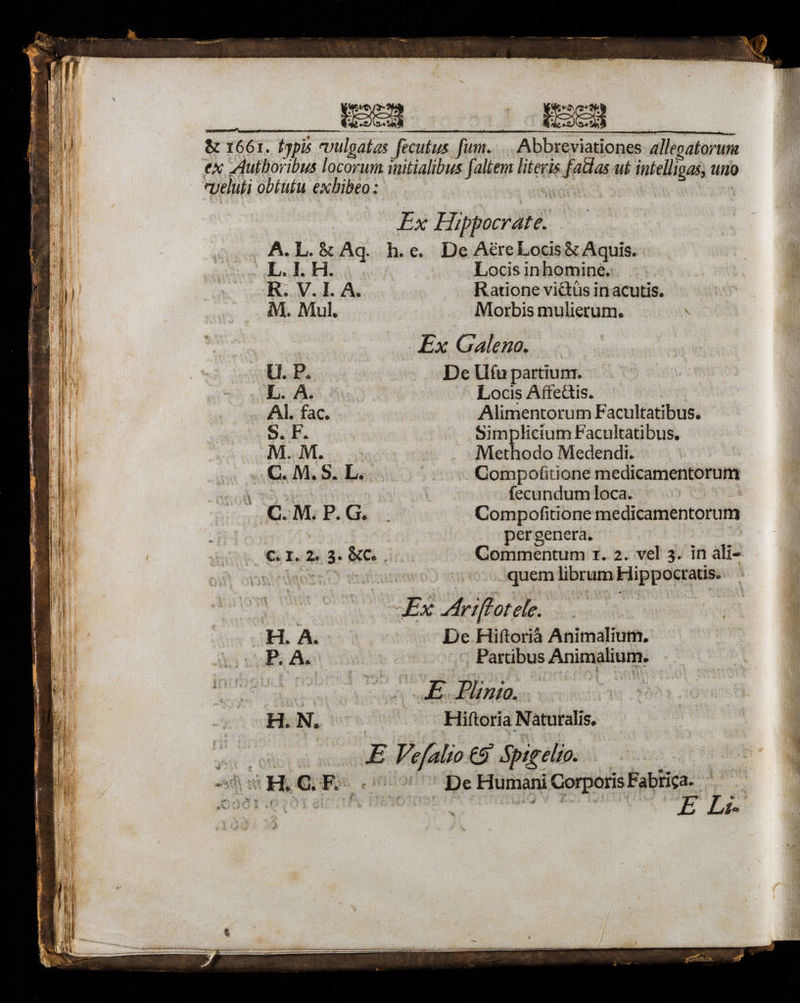 & 1661. typis vulgatas ſecutus ſum. Abbreviationes allegatorum
ex Authoribus locorum initialibus ſaltem literis factas ut intelligas, uno
veluti obtutu exhibeo:
Ex Hippocrate.
A. L. & Aq. h. e. De Aëre Locis & Aquis.
L. I. H. Locis in homine.
R. V. I. A. Ratione victûs in acutis.
M. Mul. Morbis mulierum.
Ex Galeno.
U. P. De Uſu partium.
L. A. Locis Affectis.
Al. fac. Alimentorum Facultatibus.
S. F. Simplicium Facultatibus.
M. M. Methodo Medendi.
C. M. S. L. Compoſitione medicamentorum
ſecundum loca.
C. M. P. G. Compoſitione medicamentorum
per genera.
C. 1. 2. 3. &c. Commentum 1. 2. vel 3. in ali-
quem librum Hippocratis.
Ex Ariſtotele.
H. A. De Hiſtoriâ Animalium.
P. A. Partibus Animalium.
E Plinio.
H. N. Hiſtoria Naturalis.
E Veſalio & Spigelio.
H. C. F. De Humani Corporis Fabrica.
E Li-